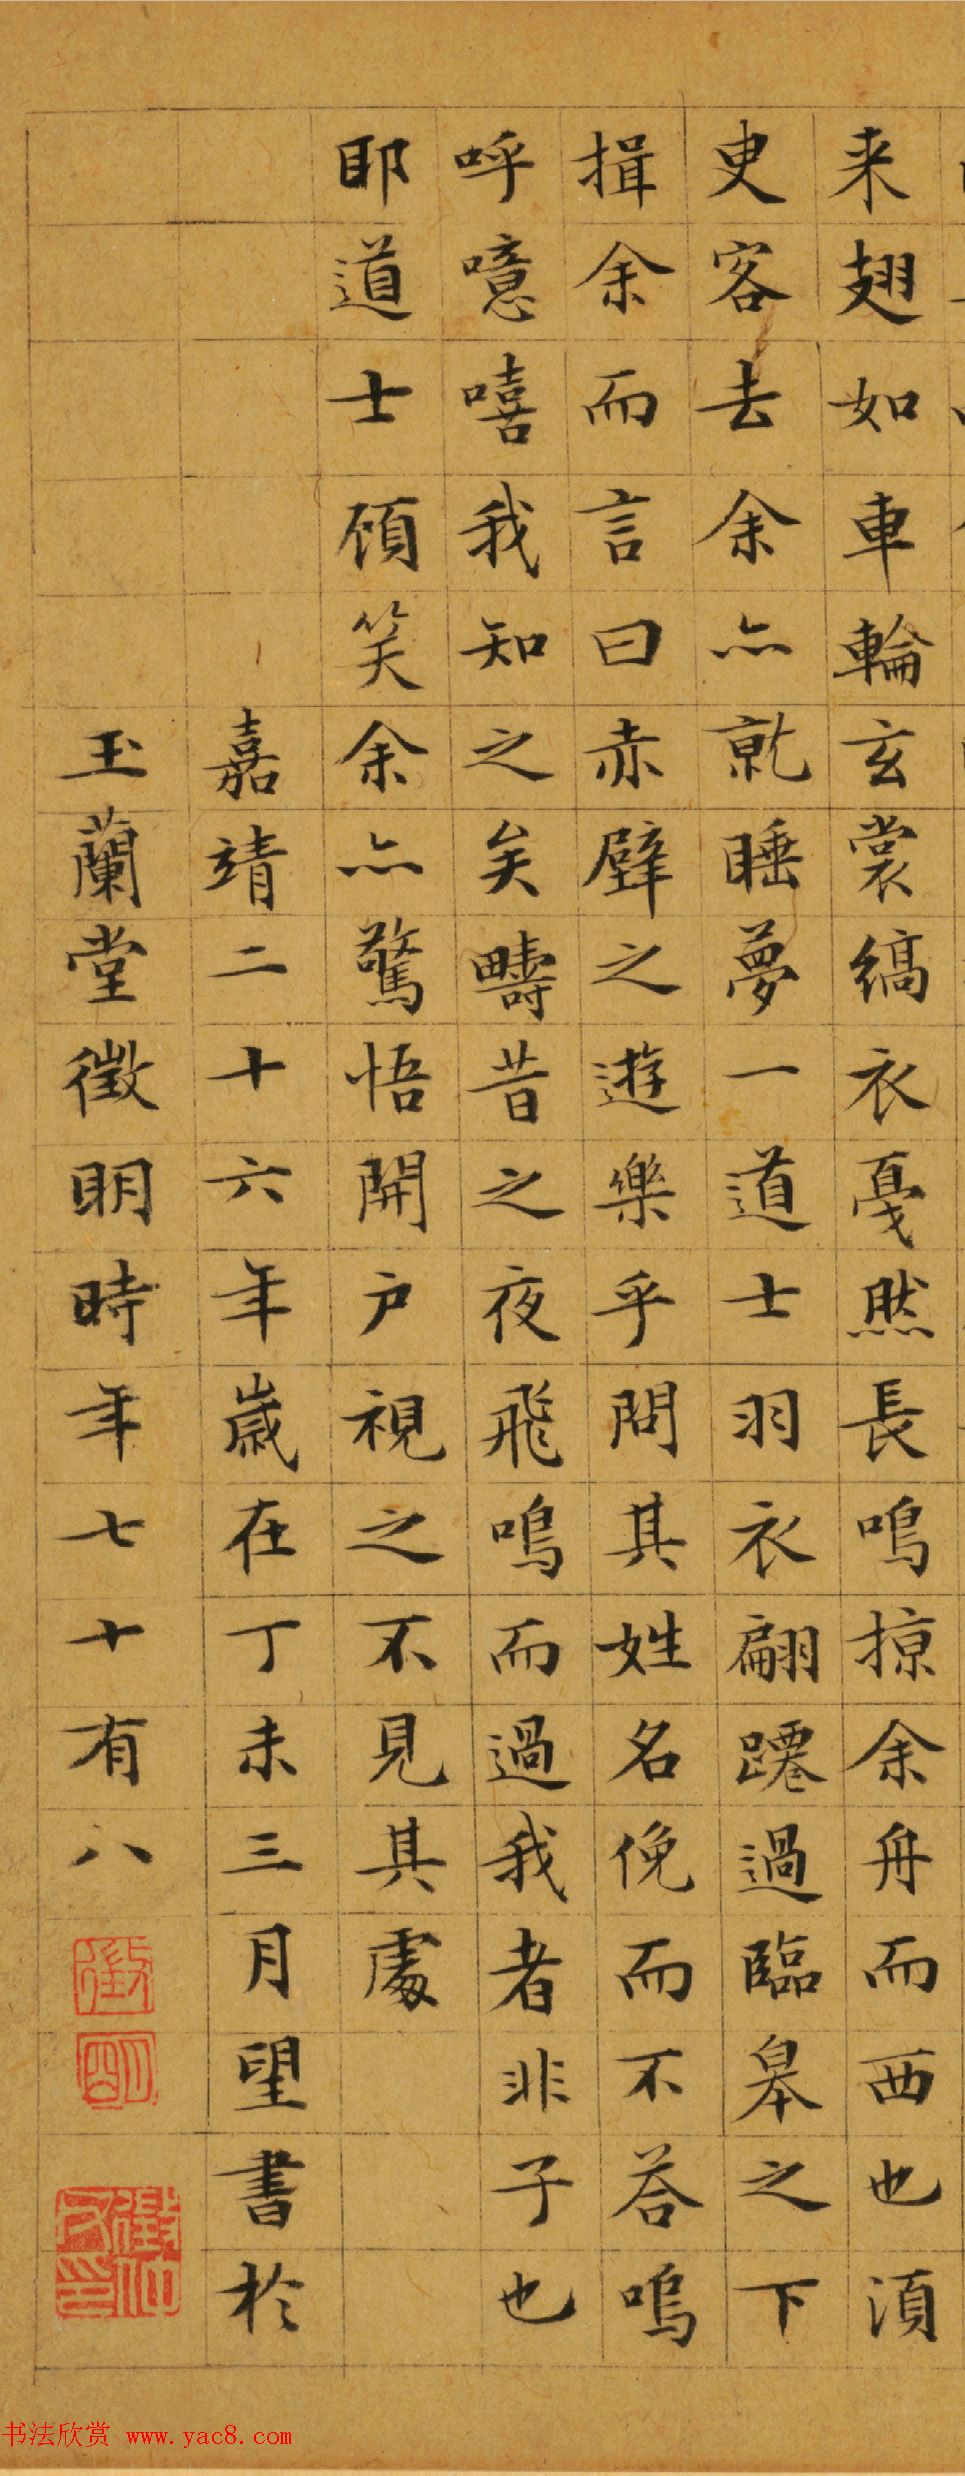 来翅如車輪玄裳縞衣戞然長鳴掠余舟而西也湏
叟客去余亦就睡夢一道士羽衣翩躚過臨皋之下
揖余而言曰赤壁之遊樂乎問其姓名俛而不荅嗚
呼噫嘻我知之矣疇昔之夜飛鳴而過我者非子也
耶道士顧笑余亦驚悟開户視之不見其處
嘉靖二十六年歲在丁未三月望書於
玉蘭堂徵明時年七十有八
徵
明
書法欣赏 www.yac8.com